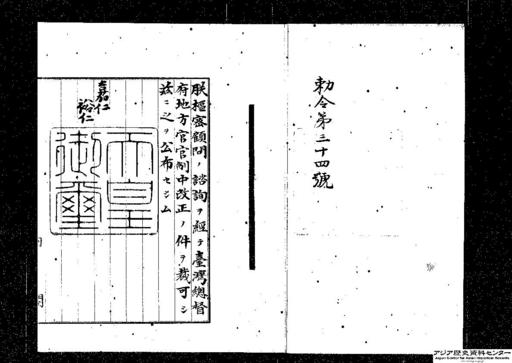 勅令第三十四號
朕樞密顧問ノ諮詢ヲ經テ臺灣總督
府地方官官制中改正ノ件ヲ裁可シ
茲ニ之ヲ公布セシム
嘉仁
裕仁
天皇
御璽
内閣
アジア歴史資料センター
Japan Center for Asian Historical Records